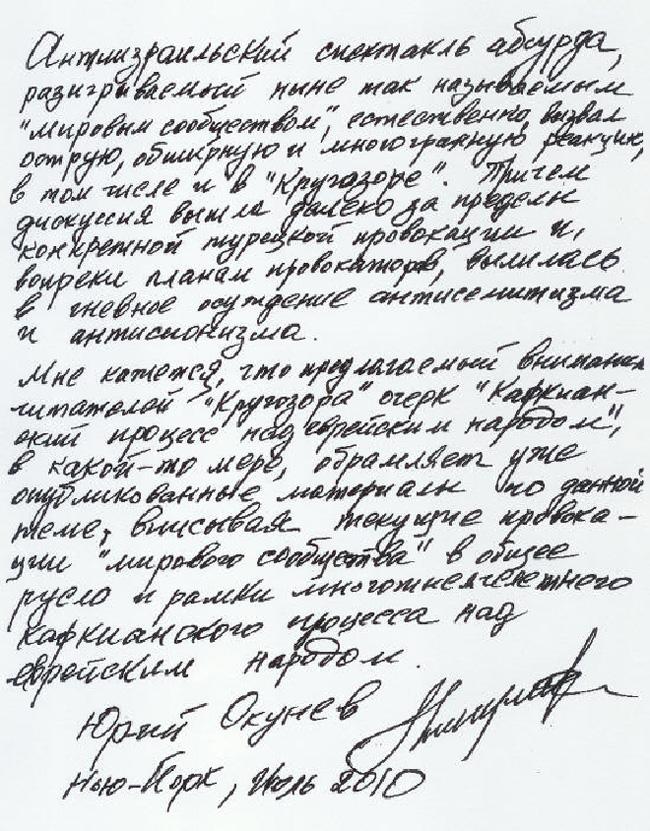 Антиизраильский спектакль абсурда,
разигрываемый ныне так называемым
"мировым сообществом", естественно, вызвал
острую, обширную и многогранную реакцию,
в том числе и в "Кругозоре". Причем
дискуссия вышла далеко за пределы
конкретной турецкой провокации и,
вопреки планам провокаторов, вылилась
в гневное осуждение антисемитизма
и антисионизма.
Мне кажется, что предлагаемый вниманию
читателей "Кругозора" очерк "Кафкиан-
ский процесс над еврейским народом",
в какой-то мере, обрамляет уже
опубликованные материалы по данной
теме, вписывая текущие провока-
ции "мирового сообщества" в общее
русло и рамки многотысячелетнего
кафкианского процесса над
еврейским народом.
Юрий Окунев
Нью-Йорк, Июль 2010